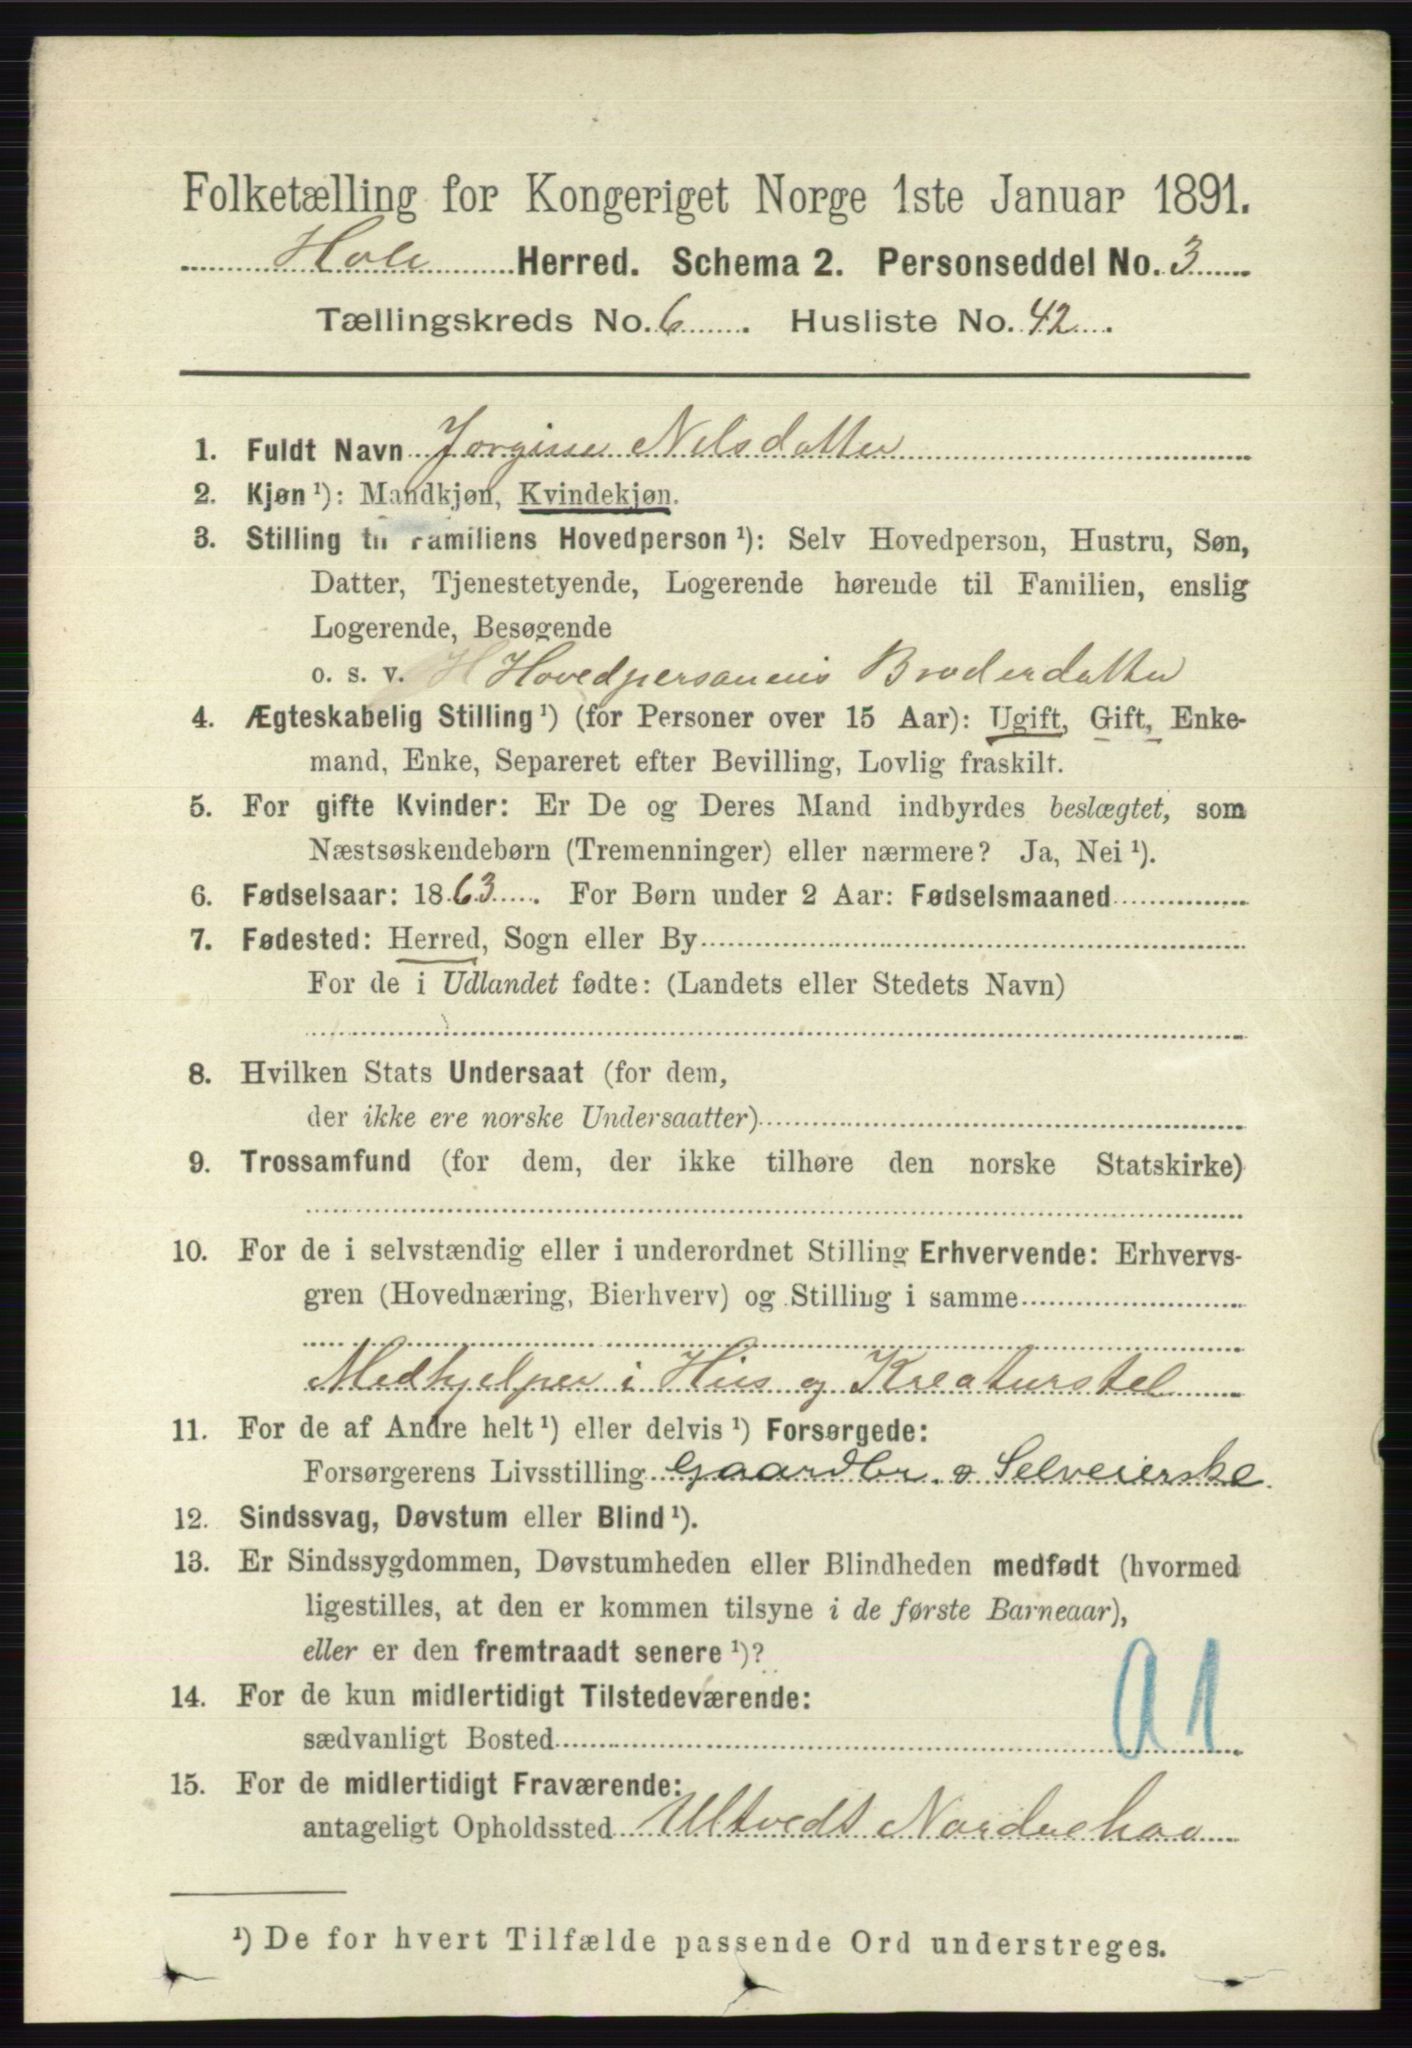 Folketælling for Kongeriget Norge 1ste Januar 1891.
Hole Herred. Schema 2. Personseddel No. 3
Tællingskreds No. 6. Husliste No. 42.
1. Fuldt Navn Jorgine Nelsdatter
2. Kjøn ¹): Mandkjøn, Kvindekjøn.
3. Stilling til Familiens Hovedperson ¹): Selv Hovedperson, Hustru, Søn,
Datter, Tjenestetyende, Logerende hørende til Familien, enslig
Logerende, Besøgende
o. s. v. H Hovedpersonens Broderdatter
4. Ægteskabelig Stilling ¹) (for Personer over 15 Aar): Ugift, Gift, Enke-
mand, Enke, Separeret efter Bevilling, Lovlig fraskilt.
5. For gifte Kvinder: Er De og Deres Mand indbyrdes beslægtet, som
Næstsøskendebørn (Tremenninger) eller nærmere? Ja, Nei ¹).
6. Fødselsaar: 1863. For Børn under 2 Aar: Fødselsmaaned
7. Fødested: Herred, Sogn eller By
For de i Udlandet fødte: (Landets eller Stedets Navn)
8. Hvilken Stats Undersaat (for dem,
der ikke ere norske Undersaatter)
9. Trossamfund (for dem, der ikke tilhøre den norske Statskirke)
10. For de i selvstændig eller i underordnet Stilling Erhvervende: Erhvervs-
gren (Hovednæring, Bierhverv) og Stilling i samme
Medhjelper i Hus og Kreaturstel
11. For de af Andre helt ¹) eller delvis ¹) Forsørgede:
Forsørgerens Livsstilling Gaardbr. & Selveierske.
12. Sindssvag, Døvstum eller Blind ¹).
13. Er Sindssygdommen, Døvstumheden eller Blindheden medfødt (hvormed
ligestilles, at den er kommen tilsyne i de første Barneaar),
eller er den fremtraadt senere ¹)?
14. For de kun midlertidigt Tilstedeværende:
sædvanligt Bosted
a 1
15. For de midlertidigt Fraværende:
antageligt Opholdssted Ultvedt Norderhov
¹) De for hvert Tilfælde passende Ord understreges.